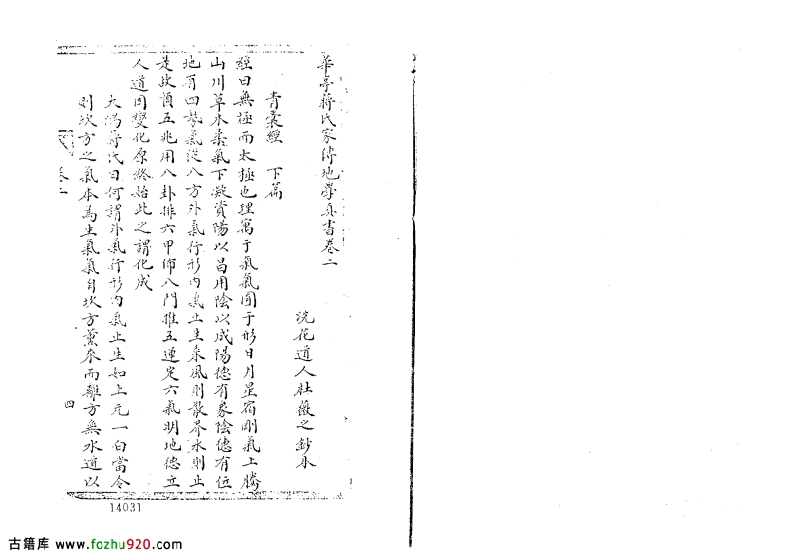 華亭蔣氏家傳地學真書卷二
浣花道人杜薇之鈔本
青囊經 下篇
經曰無極而太極也理寓于氣氣囿于形日月星宿剛氣上騰
山川草木柔氣下凝資陽以昌用陰以成陽德有象陰德有位
地有四勢氣從八方外氣行形內氣止生乘風則散界水則止
是故順五兆用八卦排六甲佈八門推五運定六氣明地德立
人道因變化原終始此之謂化成
大鴻蔣氏曰何謂外氣行形內氣止生如上元一白當令
則坎方之氣本為生氣氣自坎方薰來而離方無水道以
卷二
四
14031
古籍库 www.fozhu920.com